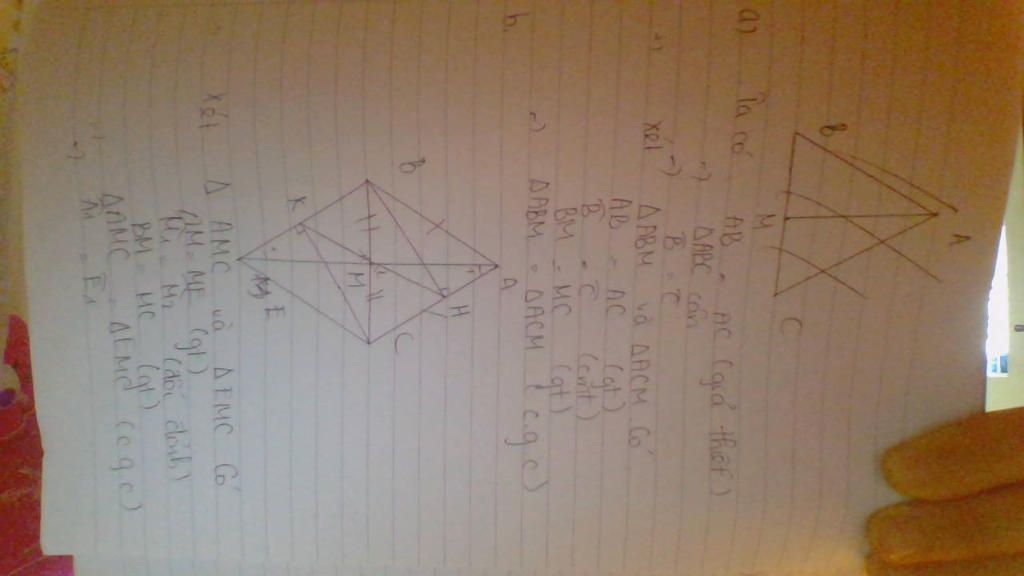 a)
A
B
M
C
Ta có AB = AC (giả thiết)
-> ΔABC cân
-> B = C
Xét ΔABM và ΔACM có
AB = AC (gt)
B = C (cmt)
BM = MC (gt)
-> ΔABM = ΔACM (c.g.c)
b.
A
B
H
C
M
K
E
Xét Δ AMC và ΔEMC có
AM = ME (gt)
M₁ = M₂ (đối đỉnh)
BM = MC (gt)
ΔAMC = ΔEMC (c.g.c)
-> A₁ = E₁